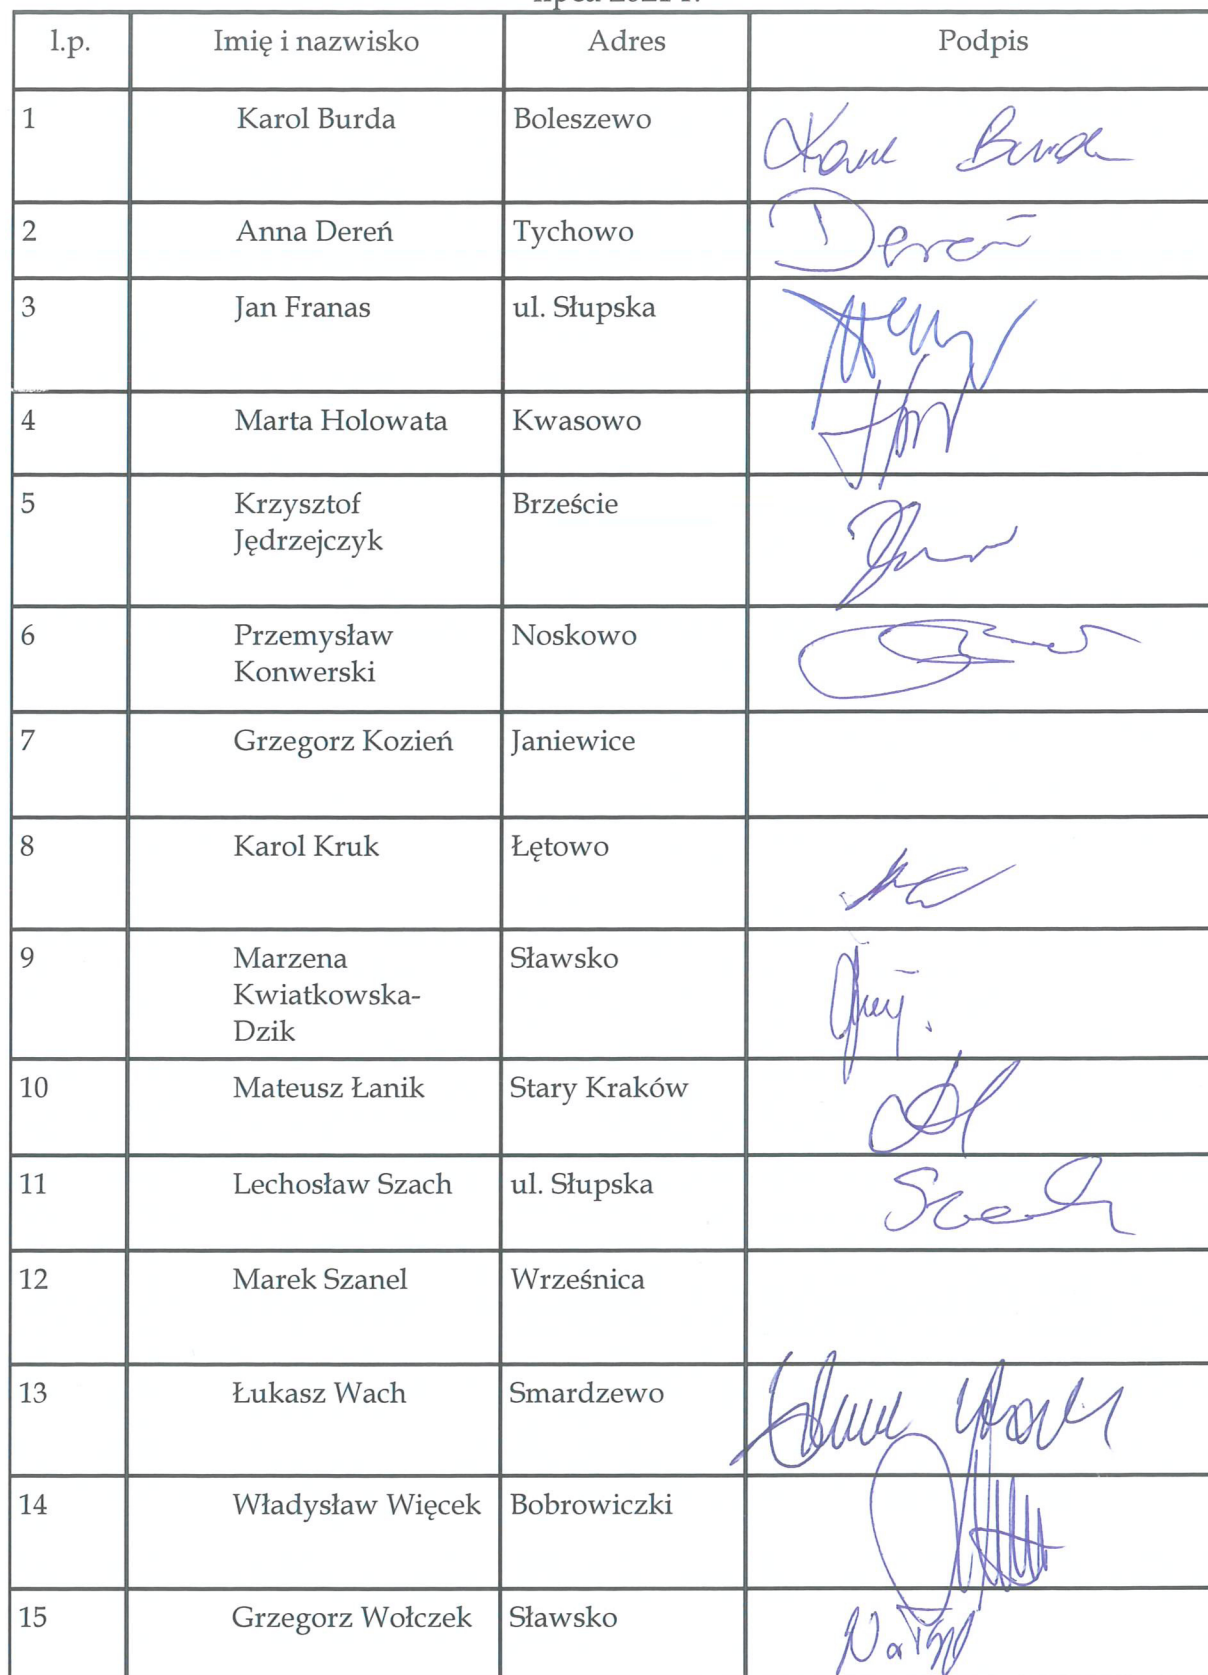 lipca 2021 r.
l.p. Imię i nazwisko Adres Podpis
1 Karol Burda Boleszewo Karol Burda
2 Anna Dereń Tychowo Dereń
3 Jan Franas ul. Słupska
4 Marta Holowata Kwasowo
5 Krzysztof Brzeście
Jędrzejczyk
6 Przemysław Noskowo
Konwerski
7 Grzegorz Kozień Janiewice
8 Karol Kruk Łętowo
9 Marzena Sławsko
Kwiatkowska-
Dzik
10 Mateusz Łanik Stary Kraków
11 Lechosław Szach ul. Słupska Szach
12 Marek Szanel Wrześnica
13 Łukasz Wach Smardzewo
14 Władysław Więcek Bobrowiczki
15 Grzegorz Wołczek Sławsko